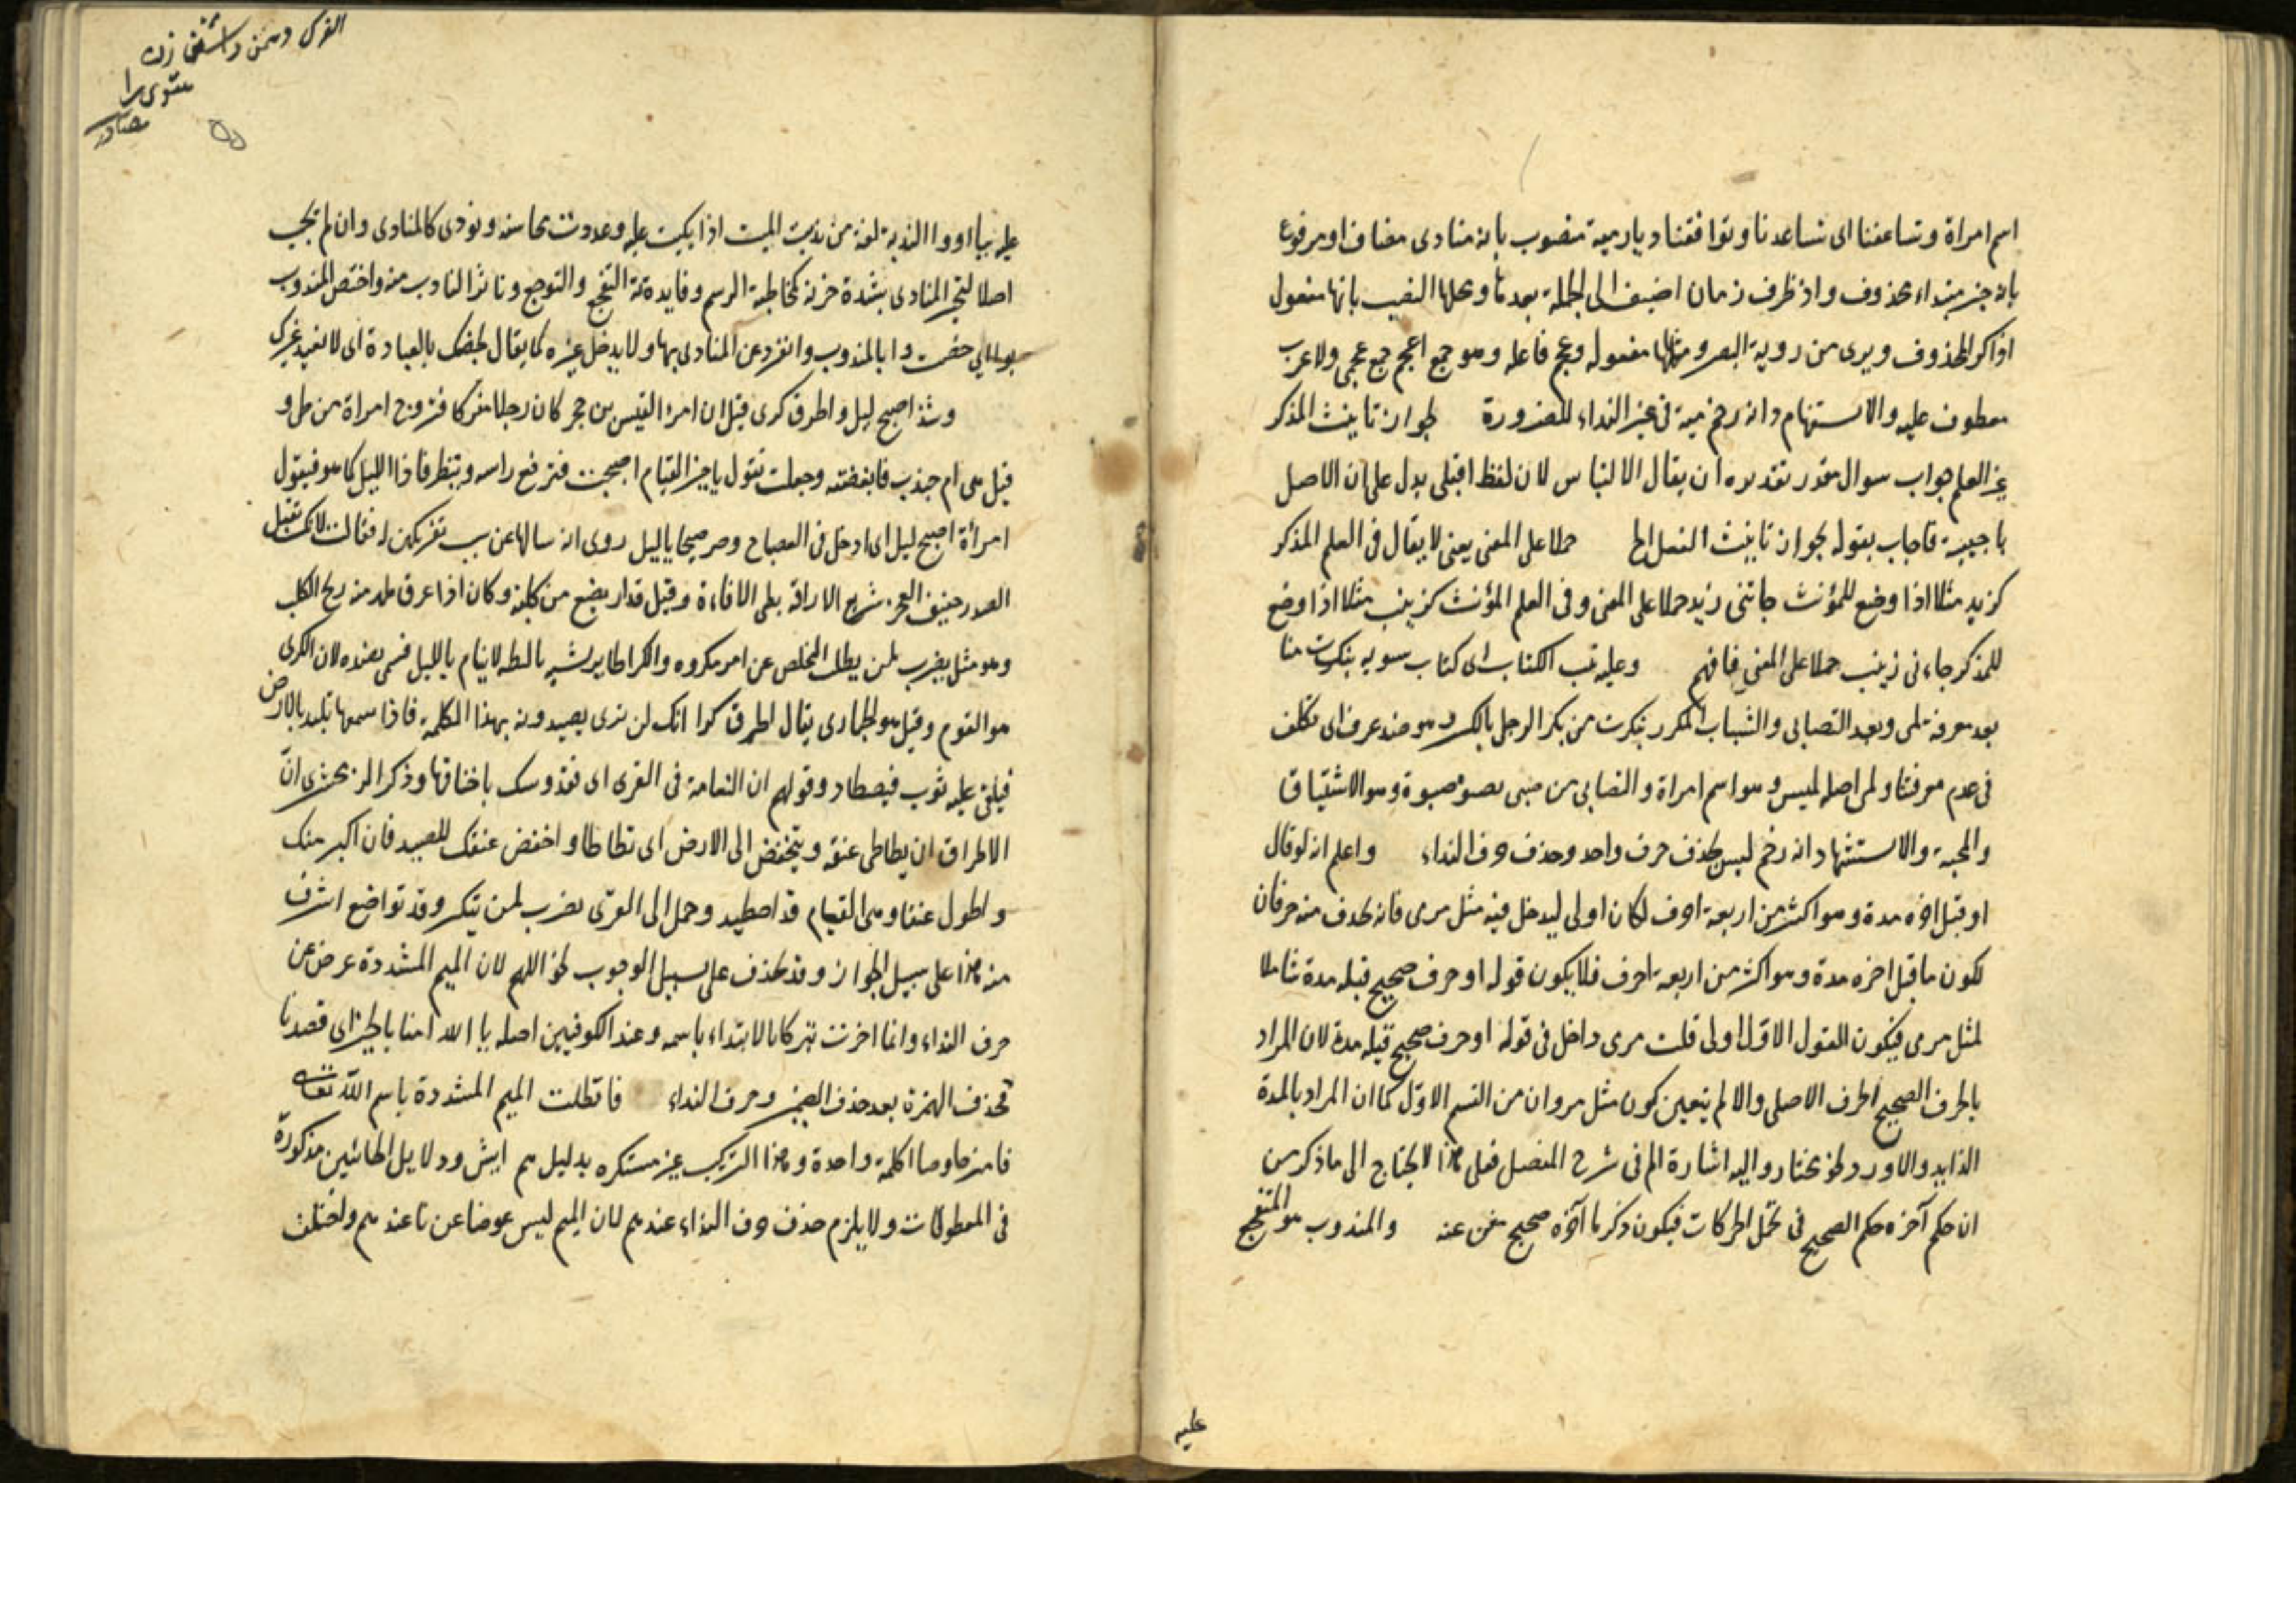 اسم امراة وتساعفنا اى تساعدنا وتوافقنا وديار مية منصوب بانه منادى مضاف او مرفوع
بانه خبر مبتداء محذوف واذ ظرف زمان اضيف الى الجملة بعدها ومحلها النصب بانها مفعول
اذكر المحذوف ويرى من روية البصر ومثلها مفعوله وعجم فاعله وهو جمع اعجم جمع عجمى ولا عرب
معطوف عليه والاستشهاد انه رخم مية فى غير النداء للضرورة لجواز تانيث المذكر
غير العلم جواب سوال مقدر تقديره ان يقال الالتباس لان لفظ اقبلى يدل على ان الاصل
يا حبيبة فاجاب بقوله لجواز تانيث الفعل الخ حملا على المعنى يعنى لا يقال فى العلم المذكر
كزيد مثلا اذا وضع للمؤنث جاءتنى زيد حملا على المعنى وفى العلم المؤنث كزينب مثلا اذا وضع
للمذكر جاءنى زينب حملا على المعنى فافهم وعليه الكتاب اى كتاب سيويه تنكرت منا
بعد معرفة لمى وبعد التصابى والشباب المكرر تنكرت من نكر الرجل بالكسر وهو ضد عرف اى تكلف
فى عدم معرفتنا ولمى اصله لميس وهو اسم امراة والتصابى من صبى يصبو صبوة وهو الاشتياق
والمحبة والاستشهاد انه رخم لميس بحذف حرف واحد وحذف حرف النداء واعلم انه لو قال
او قبل اخره مدة وهو اكثر من اربعة احرف لكان اولى ليدخل فيه مثل مرمى فانه يحذف منه حرفان
لكون ما قبل اخره مدة وهو اكثر من اربعة احرف فلا يكون قوله او حرف صحيح قبله مدة شاملا
لمثل مرمى فيكون القول الاول اولى قلت مرمى داخل فى قوله او حرف صحيح قبله مدة لان المراد
بالحرف الصحيح الحرف الاصلى والا لم يتعين كون مثل مروان من القسم الاول كما ان المراد بالمدة
الزايد والاورد نحو مختار واليه اشارة الم فى شرح المفصل فعلى هذا لا يحتاج الى ما ذكر من
ان حكم آخره حكم الصحيح فى تحمل الحركات فيكون ذكر ما آخره صحيح مغن عنه والمندوب هو المتفجع
عليه
القرى وسمن و زن

عليه بيا او وا الندبة لغة من ندبت الميت اذا بكيت عليه وعددت محاسنه ونودى كالمنادى وان لم يجب
اصلا لتحير المنادى بشدة حزنه كمخاطبة الرسم وفايدته التفجع والتوجع وتاثر النادب منه واختص المندوب
بوا اى خصت وا بالمندوب وانفرد عن المنادى بها ولا يدخل غيره كما يقال نخصك بالعبادة اى لا نعبد غيرك
وشذ اصبح ليل واطرق كرى قيل ان امرء القيس بن حجر كان رجلا مفركا فتزوج امراة من طى و
قيل هى ام جندب فابغضته وجعلت تقول يا خير الفتيان اصبحت فترفع راسه وتنظر فاذا الليل كما هو فيقول
امرأة اصبح ليل اى ادخل فى الصباح وصر صبحا يا ليل روى انه سالها عن سبب تفريكهن له فقالت لانك ثقيل
الصدر خفيف العجز سريع الاراقة بطى الافاقة وقيل قد ارضع من كلبة وكان اذا عرق منه ريح الكلب
وهو مثل يضرب لمن يطلب التخلص عن امر مكروه والكرا طاير شبه بالبطه لا ينام بالليل فسمى بضده لان الكرى
هو النوم وقيل هو الحبارى يقال اطرق كرا انك لن ترى يصيدونه بهذا الكلمة فاذا سمعها تلبد بالارض
فيلقى عليه ثوب فيصطاد وقولهم ان النعامة فى القرى اى وذكر الزمخشرى ان
الاطراق ان يطاطى عنقه وينخفض الى الارض اى تطاطا واخفض عنقك للصيد فان اكبر منك
واطول عنقا وهى النعام قد اصطيد وحمل الى القرى يضرب لمن يتكبر وقد تواضع اشرف
منه هذا على سبيل الجواز وقد يحذف على سبيل الوجوب نحو اللهم لان الميم المشددة عوض عن
حرف النداء وانما اخرت تبركا بالابتداء باسمه وعند الكوفيين اصله يا الله امنا بالخير اى قصدنا
فحذف الهمزة بعد حذف الضمير وحرف النداء فاتصلت الميم المشددة باسم الله تعالى
فامتزجا وصارا كلمة واحدة وهذا التركيب غير مستكره بدليل هم ايش ودلايل الطائفتين مذكورة
فى المطولات ولا يلزم حذف حرف النداء عندهم لان الميم ليس عوضا عن يا عندهم واختلف